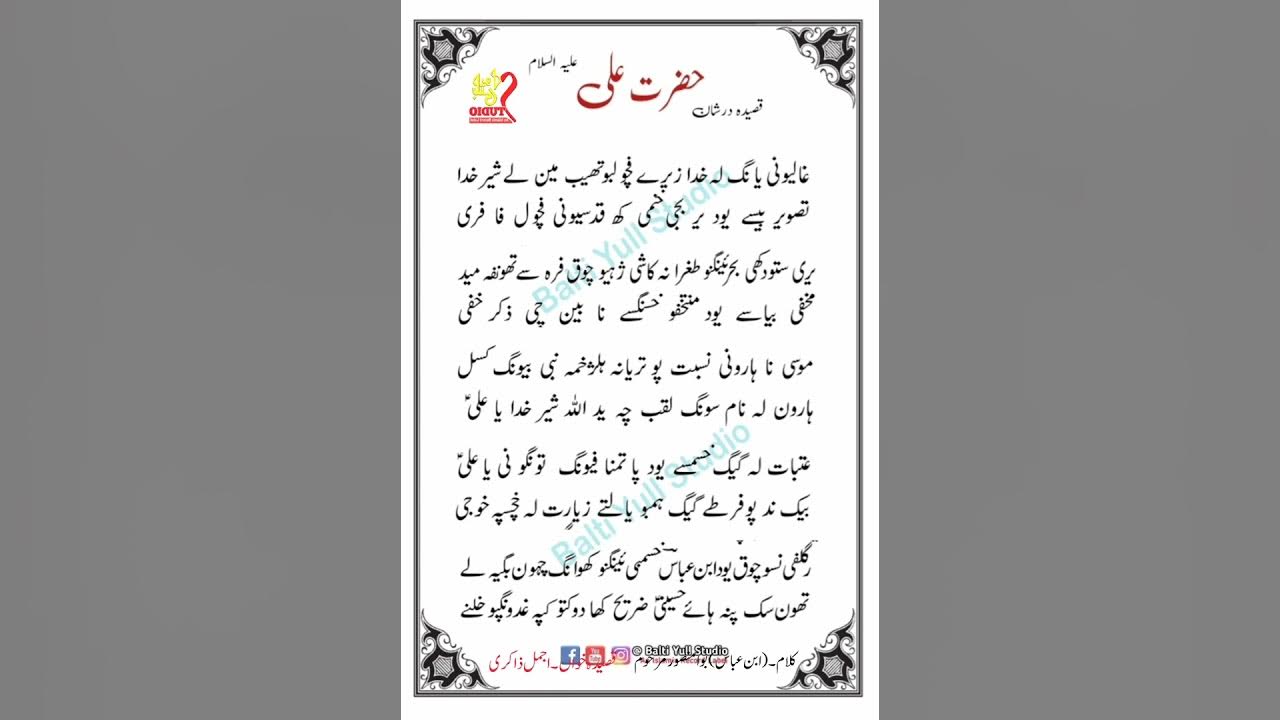 علیہ السلام
حضرت علی
قصیدہ در شان
غالیونی یانگ لہ خدا زیرے فچو لبو تھیب مین لے شیر خدا
تصویر بیسے یود یر بجی خسمی کھ قدسیونی فچول فا فری
یری ستودکھی بحر ئینگنو طغرا نہ کاشی ژھیو چوق فرہ سے تھونفہ مید
مخفی بیاسے یود منتخفو خسنگسے نا بین چی ذکر خفی
موسی نا ہارونی نسبت پو تریانہ ہلژخمہ نبی بیونگ کسل
ہارون لہ نام سونگ لقب چہ ید اللہ شیر خدا یا علیؑ
عتبات لہ گیگ خسمسے یود پا تمنا فیونگ تونگو نی یا علیؑ
بیک ند پو فرطے گیگ ہمبو یا لتے زیارت لہ خچسپہ خوجی
رگلفی نسو چوق یود ابن عباسؔ خسمی ئینگنو کھوانگ چہون بگیہ لے
تھون سک پنہ ہائے حسینیؑ ضریح کھا دوکتو کپہ غدونگپو خلنے
© Balti Yull Studio
کلام۔(ابن عباس)بوا
مرحوم
قصیدہ خواں۔اجمل ذاکری
Balti Yull Studio
Balti Yull Studio